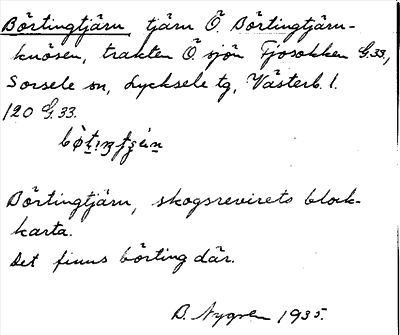 Börtingtjärn tjärn Ö. Börtingtjärn-
knösen, trakten Ö sjön Tjosokken G.33,
Sorsele sn, Lycksele tg, Västerb. l.
120 G.33.
Börtingtjärn, skogsrevirets block-
karta.
Det finns börting där.
B. Nygren 1935.